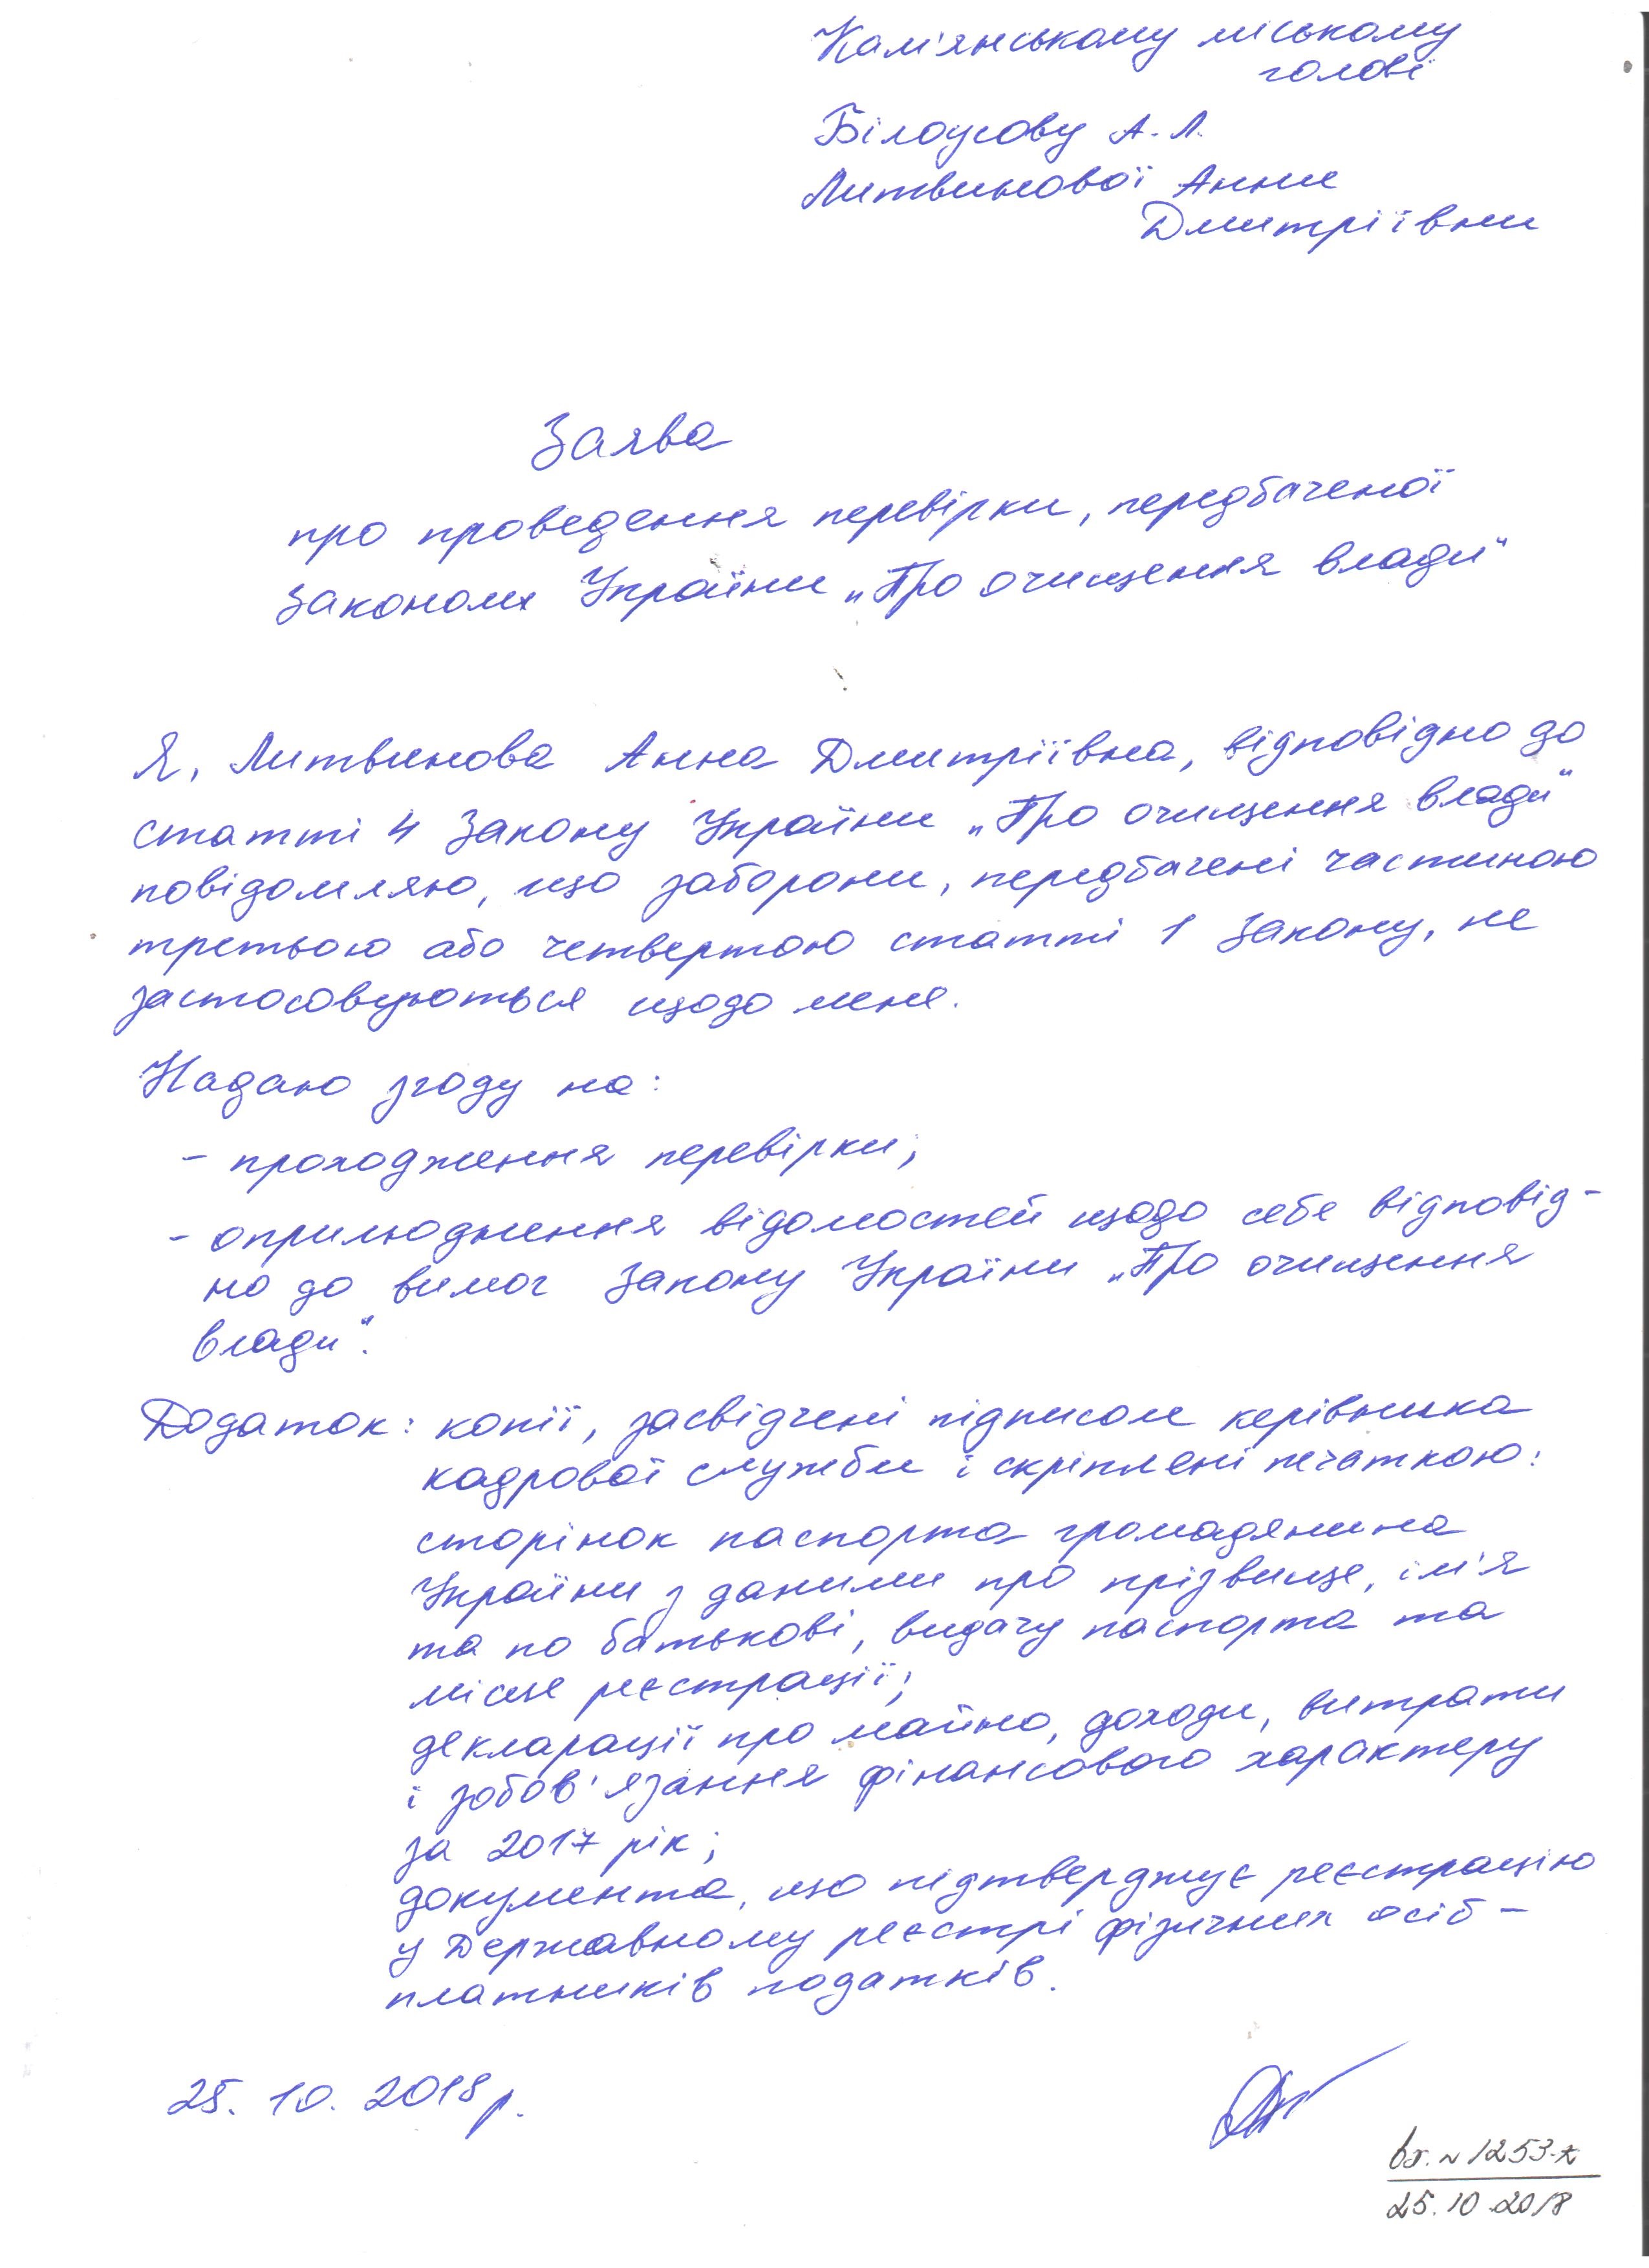 Кам'янському міському
голові
Білоусову А. Л.
Литвинової Анни
Дмитріївни
Заява
про проведення перевірки, передбаченої
Законом України „Про очищення влади"
Я, Литвинова Анна Дмитріївна, відповідно до
статті 4 Закону України „Про очищення влади"
повідомляю, що заборони, передбачені частиною
третьою або четвертою статті 1 Закону, не
застосовуються щодо мене.
Надаю згоду на:
- проходження перевірки;
- оприлюднення відомостей щодо себе відповід-
но до вимог Закону України „Про очищення
влади".
Додаток: копії, засвідчені підписом керівника
кадрової служби і скріплені печаткою:
сторінок паспорта громадянина
України з даними про прізвище, ім'я
та по батькові, видачу паспорта та
місце реєстрації;
декларації про майно, доходи, витрати
і зобов'язання фінансового характеру
за 2017 рік;
документа, що підтверджує реєстрацію
у Державному реєстрі фізичних осіб -
платників податків.
25. 10. 2018 р.
вх. №
25.10.2018